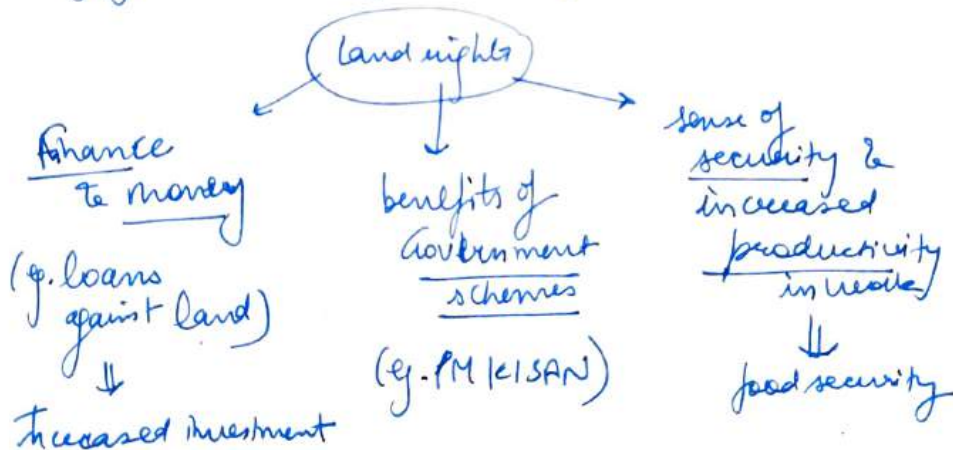 land rights
Finance
& money
(eg. loans
against land)
⇓
Increased investment
benefits of
Government
schemes
(eg. PM KISAN)
sense of
security &
increased
productivity
in
⇓
food security